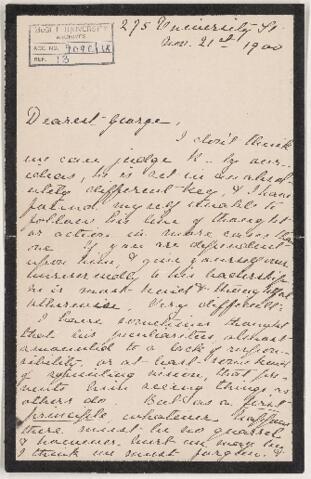 McGILL UNIVERSITY
ARCHIVES
ACC. NO.
REF. 13
275 University St.
Nov. 21st 1900
Dearest George,
I don't think
we can judge by our-
selves, he is set in an absol-
utely different key, & I have
found myself unable to
follow his line of thought
or action in more cases than
one. If you are dependent
upon him, & give yourself
unreservedly to his leadership
he is most kind & thoughtful
otherwise, very different.
I have sometimes thought
that his peculiarities almost
amounted to a lack of respon-
sibility, or at least some kind
of squinting vision, that pre-
vents him seeing things as
others do. But as a first
principle, whatever happens
there must be no quarrel
& however hurt we may be
I think we must forgive &